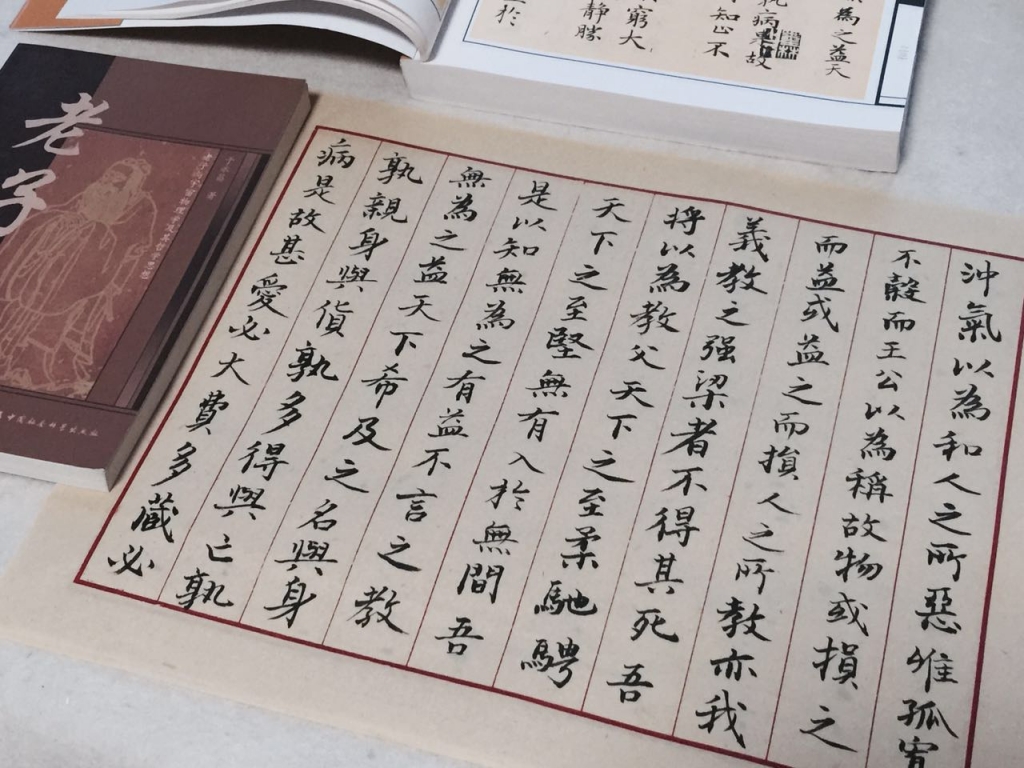 沖氣以為和人之所惡唯孤寡
不穀而王公以為稱故物或損之
而益或益之而損人之所教亦我
義教之强梁者不得其死吾
將以為教父天下之至柔馳騁
天下之至堅無有入於無間吾
是以知無為之有益不言之教
無為之益天下希及之名與身
孰親身與貨孰多得與亡孰
病是故甚愛必大費多藏必
為之益天
孰病是故
知止不
窮大
靜勝
於
老子
中国社会科学出版社